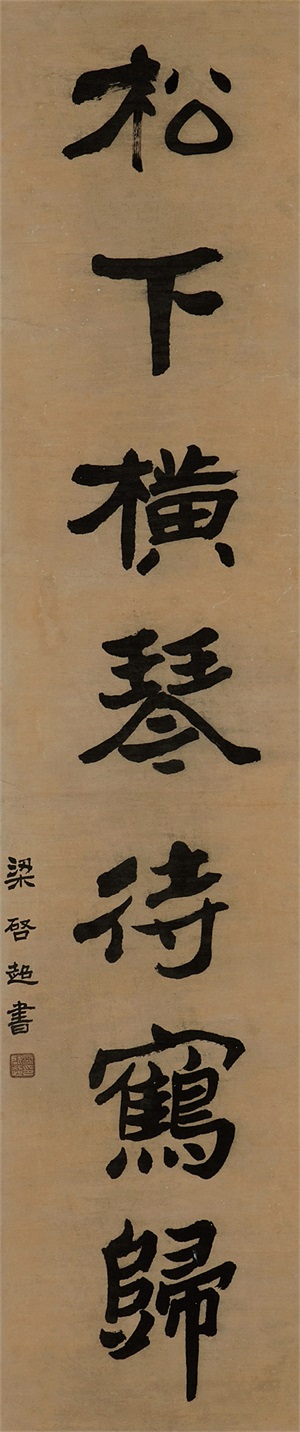 松下橫琴待鶴歸
梁啓超書